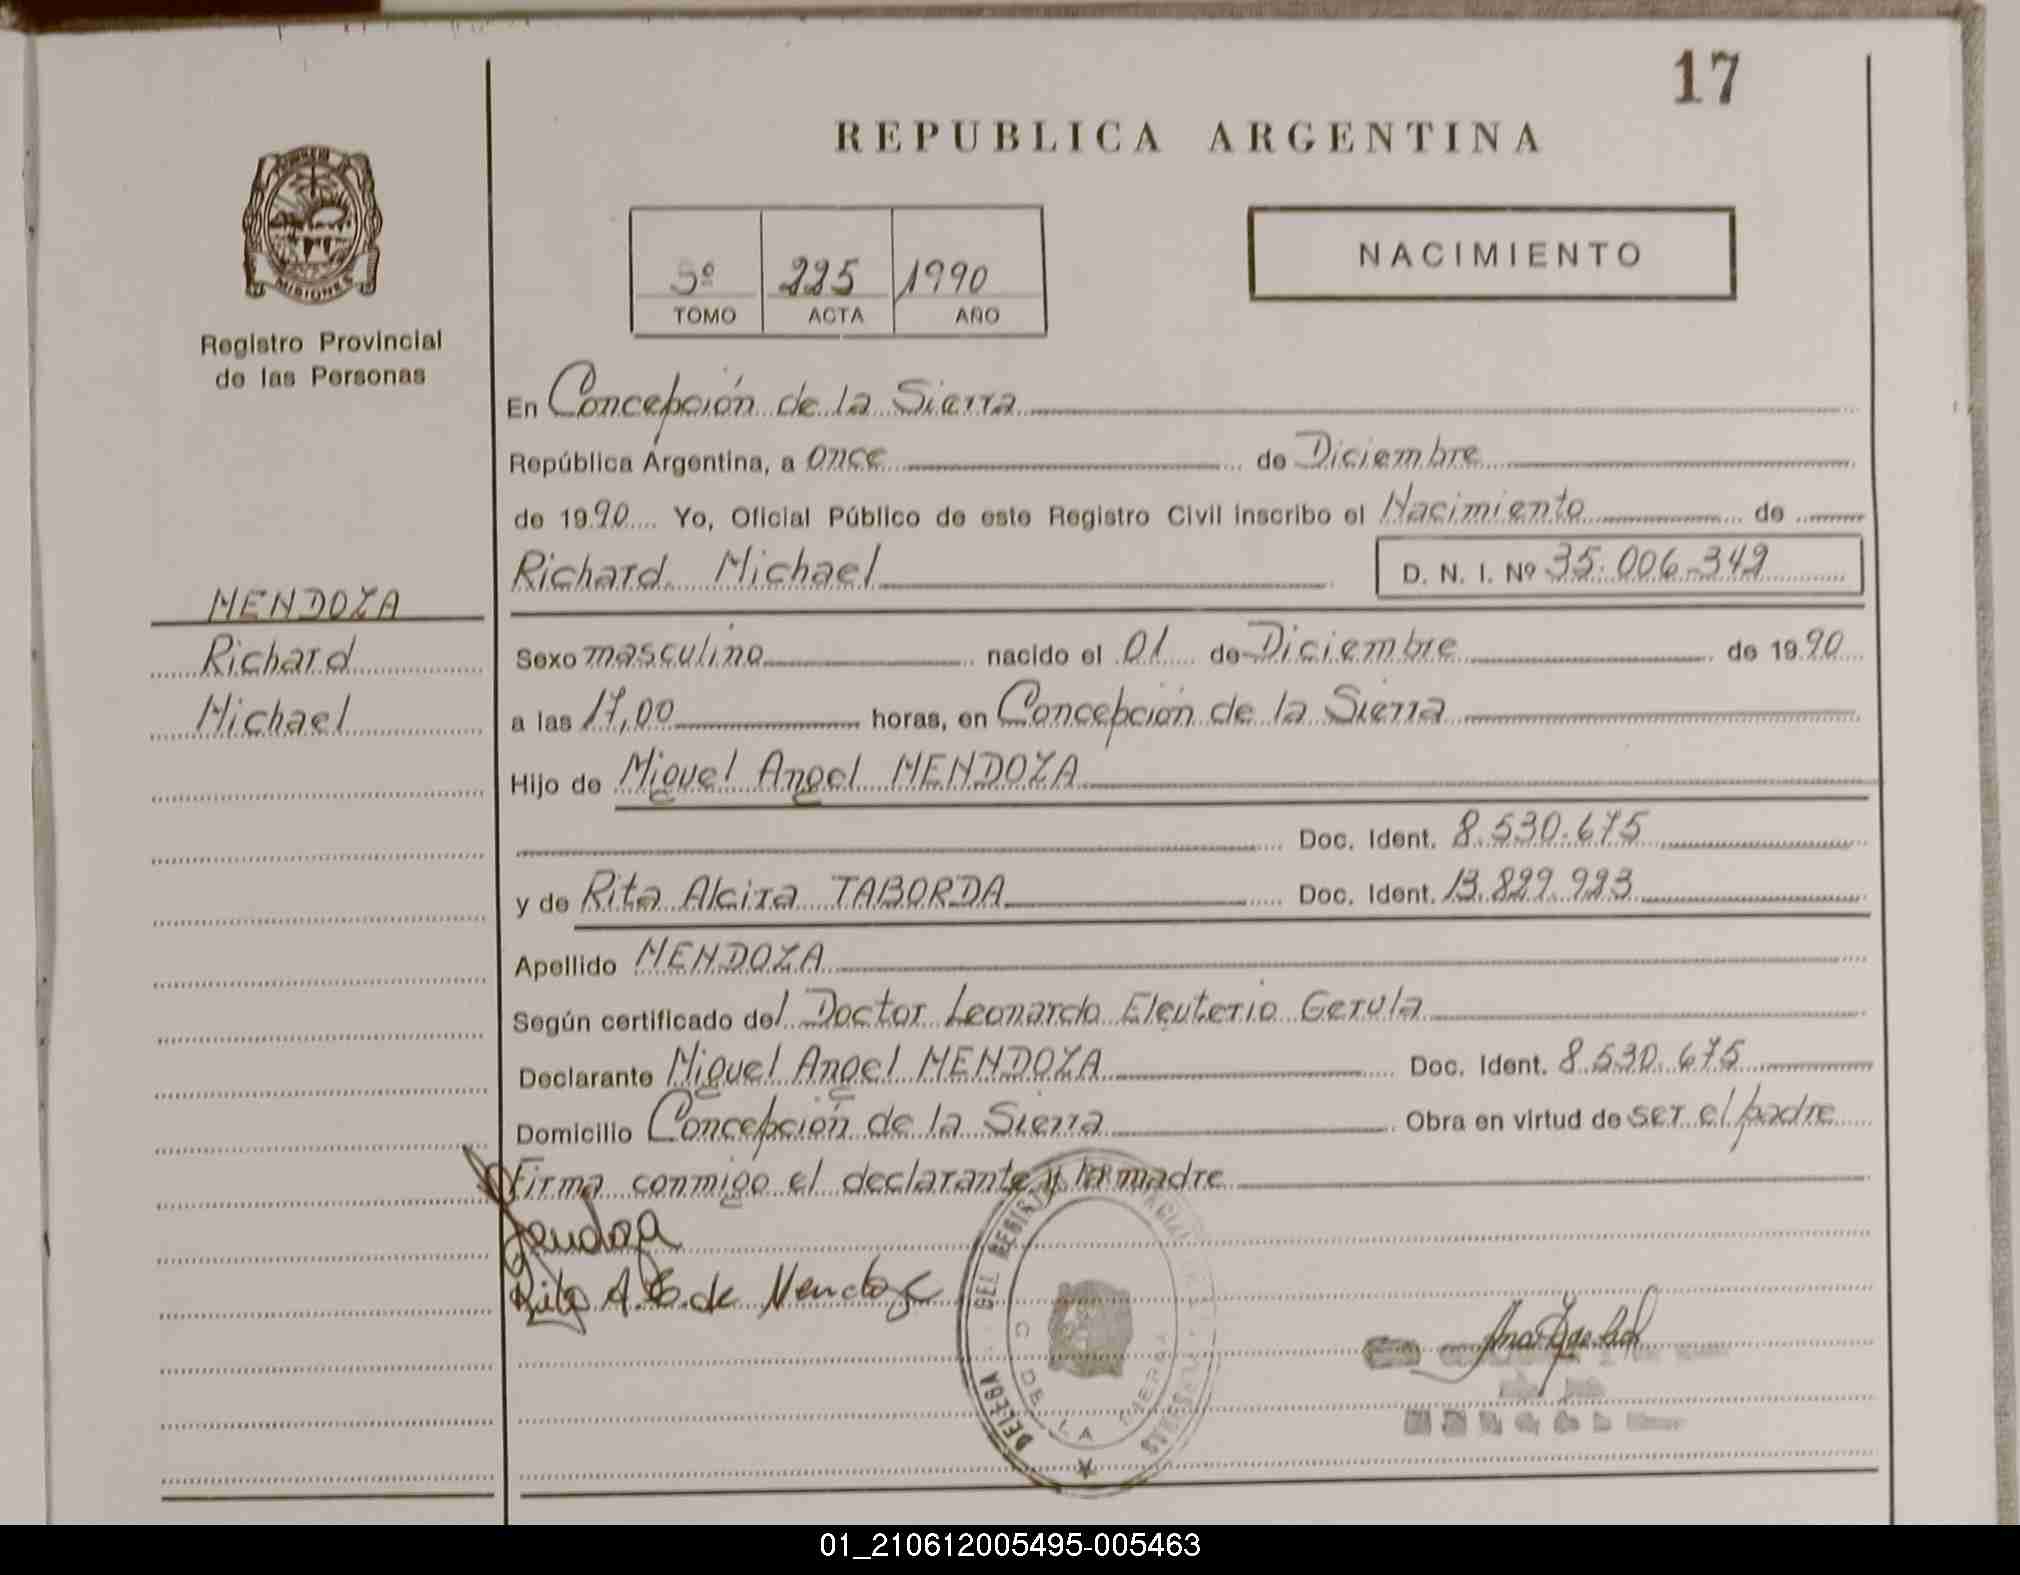 17
REPUBLICA ARGENTINA
MISIONES
Registro Provincial
de las Personas
5º 225 1990
TOMO ACTA AÑO
NACIMIENTO
En Concepción de la Sierra
República Argentina, a once de Diciembre
de 1990 Yo, Oficial Público de este Registro Civil inscribo el Nacimiento de
Richard Michael D. N. I. Nº 35.006.349
MENDOZA
Richard
Michael
Sexo masculino nacido el 01 de Diciembre de 1990
a las 17,00 horas, en Concepción de la Sierra
Hijo de Miguel Angel MENDOZA
Doc. Ident. 8.530.675
y de Rita Alcira TABORDA Doc. Ident. 13.829.923
Apellido MENDOZA
Según certificado del Doctor Leonardo Eleuterio Gerula
Declarante Miguel Angel MENDOZA Doc. Ident. 8.530.675
Domicilio Concepción de la Sierra Obra en virtud de ser el padre
Firma conmigo el declarante y la madre
Rita A. de Mendoza
DELEGA DEL REGISTR
C DE LA SIERRA
01_210612005495-005463